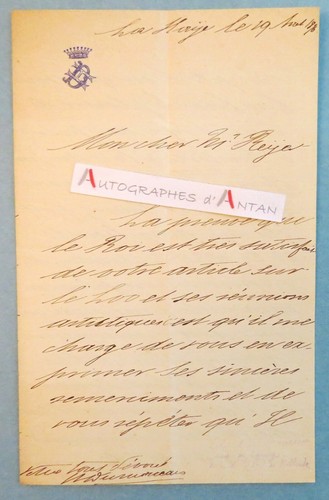 La Haye le 19
Mon cher Mr Reyer
AUTOGRAPHES d'ANTAN
La preuve que
le Roi est très satisfait
de votre article sur
le Loo et ses réunions
artistiques est qu'il me
charge de vous en ex-
primer les sincères
remerciments et de
vous répéter qu'Il
votre tout dévoué